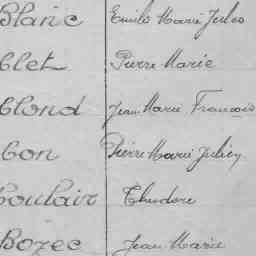 Blanc Emile Marie Jules
Clet Pierre Marie
Clond Jean Marie François
Con Pierre Marie Julien
Coulair Theodore
Bozec Jean Marie